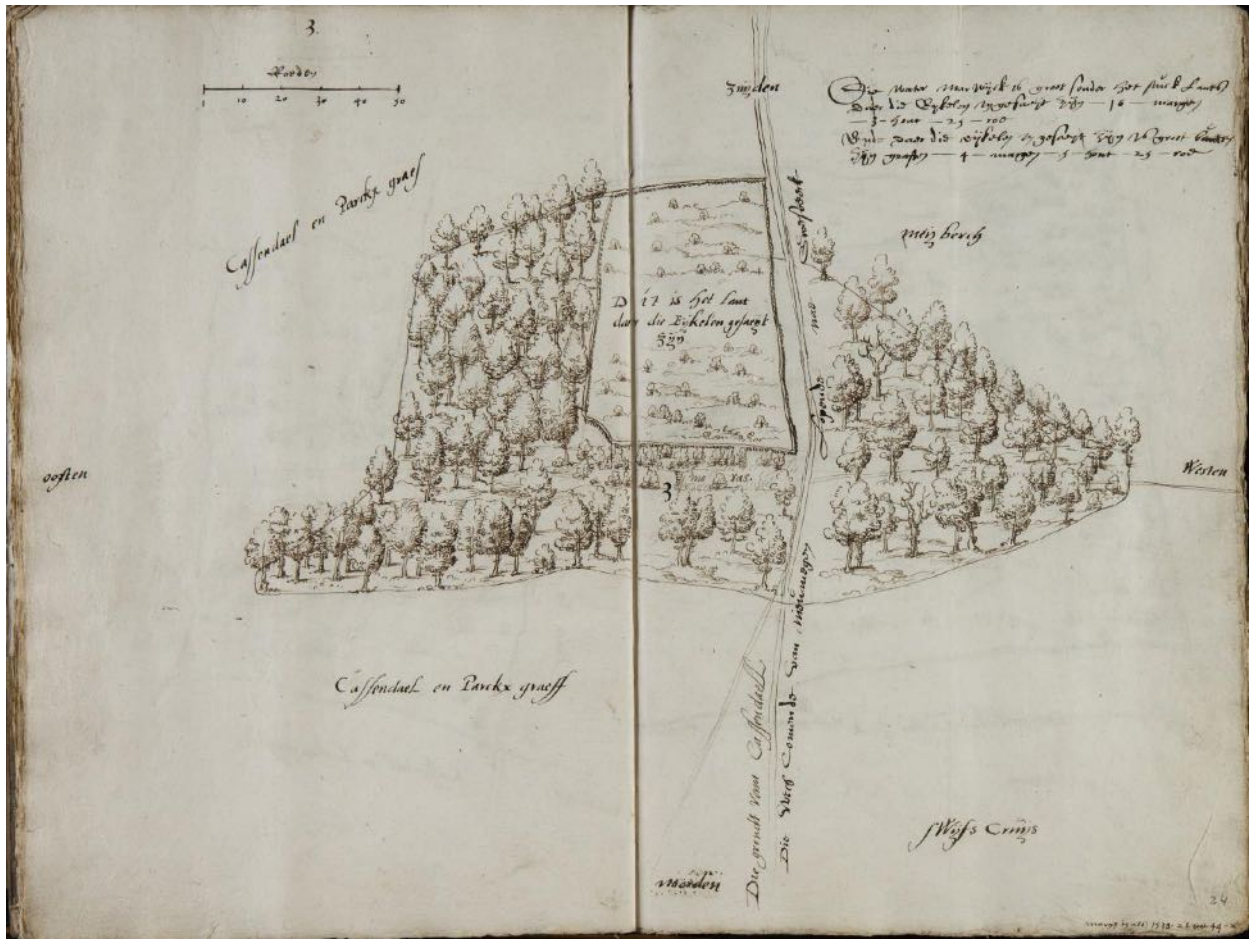 3.
Roeden
1 10 20 30 40 50
Zuyden
Die water Marwijck is groot sonder het stuck Lants
daer die Eykelen in gesaeyt zijn — 16 — margen
— 3 — hont — 25 — roe
Ende daer die eijkelen in gesaeyt zijn is groot
zijn graften — 4 — margen — 5 — hont — 25 — roe
Cassendael en Parckx graef
Meijberch
Dit is het lant
daer die Eijkelen gesaeijt
zijn
oosten
Westen
3
Cassendael en Parckx graeff
Die grindt vant Cassendaell
Die Wech Comende van Nieumegen
nae
sWijfs Cruijs
Noorden
24